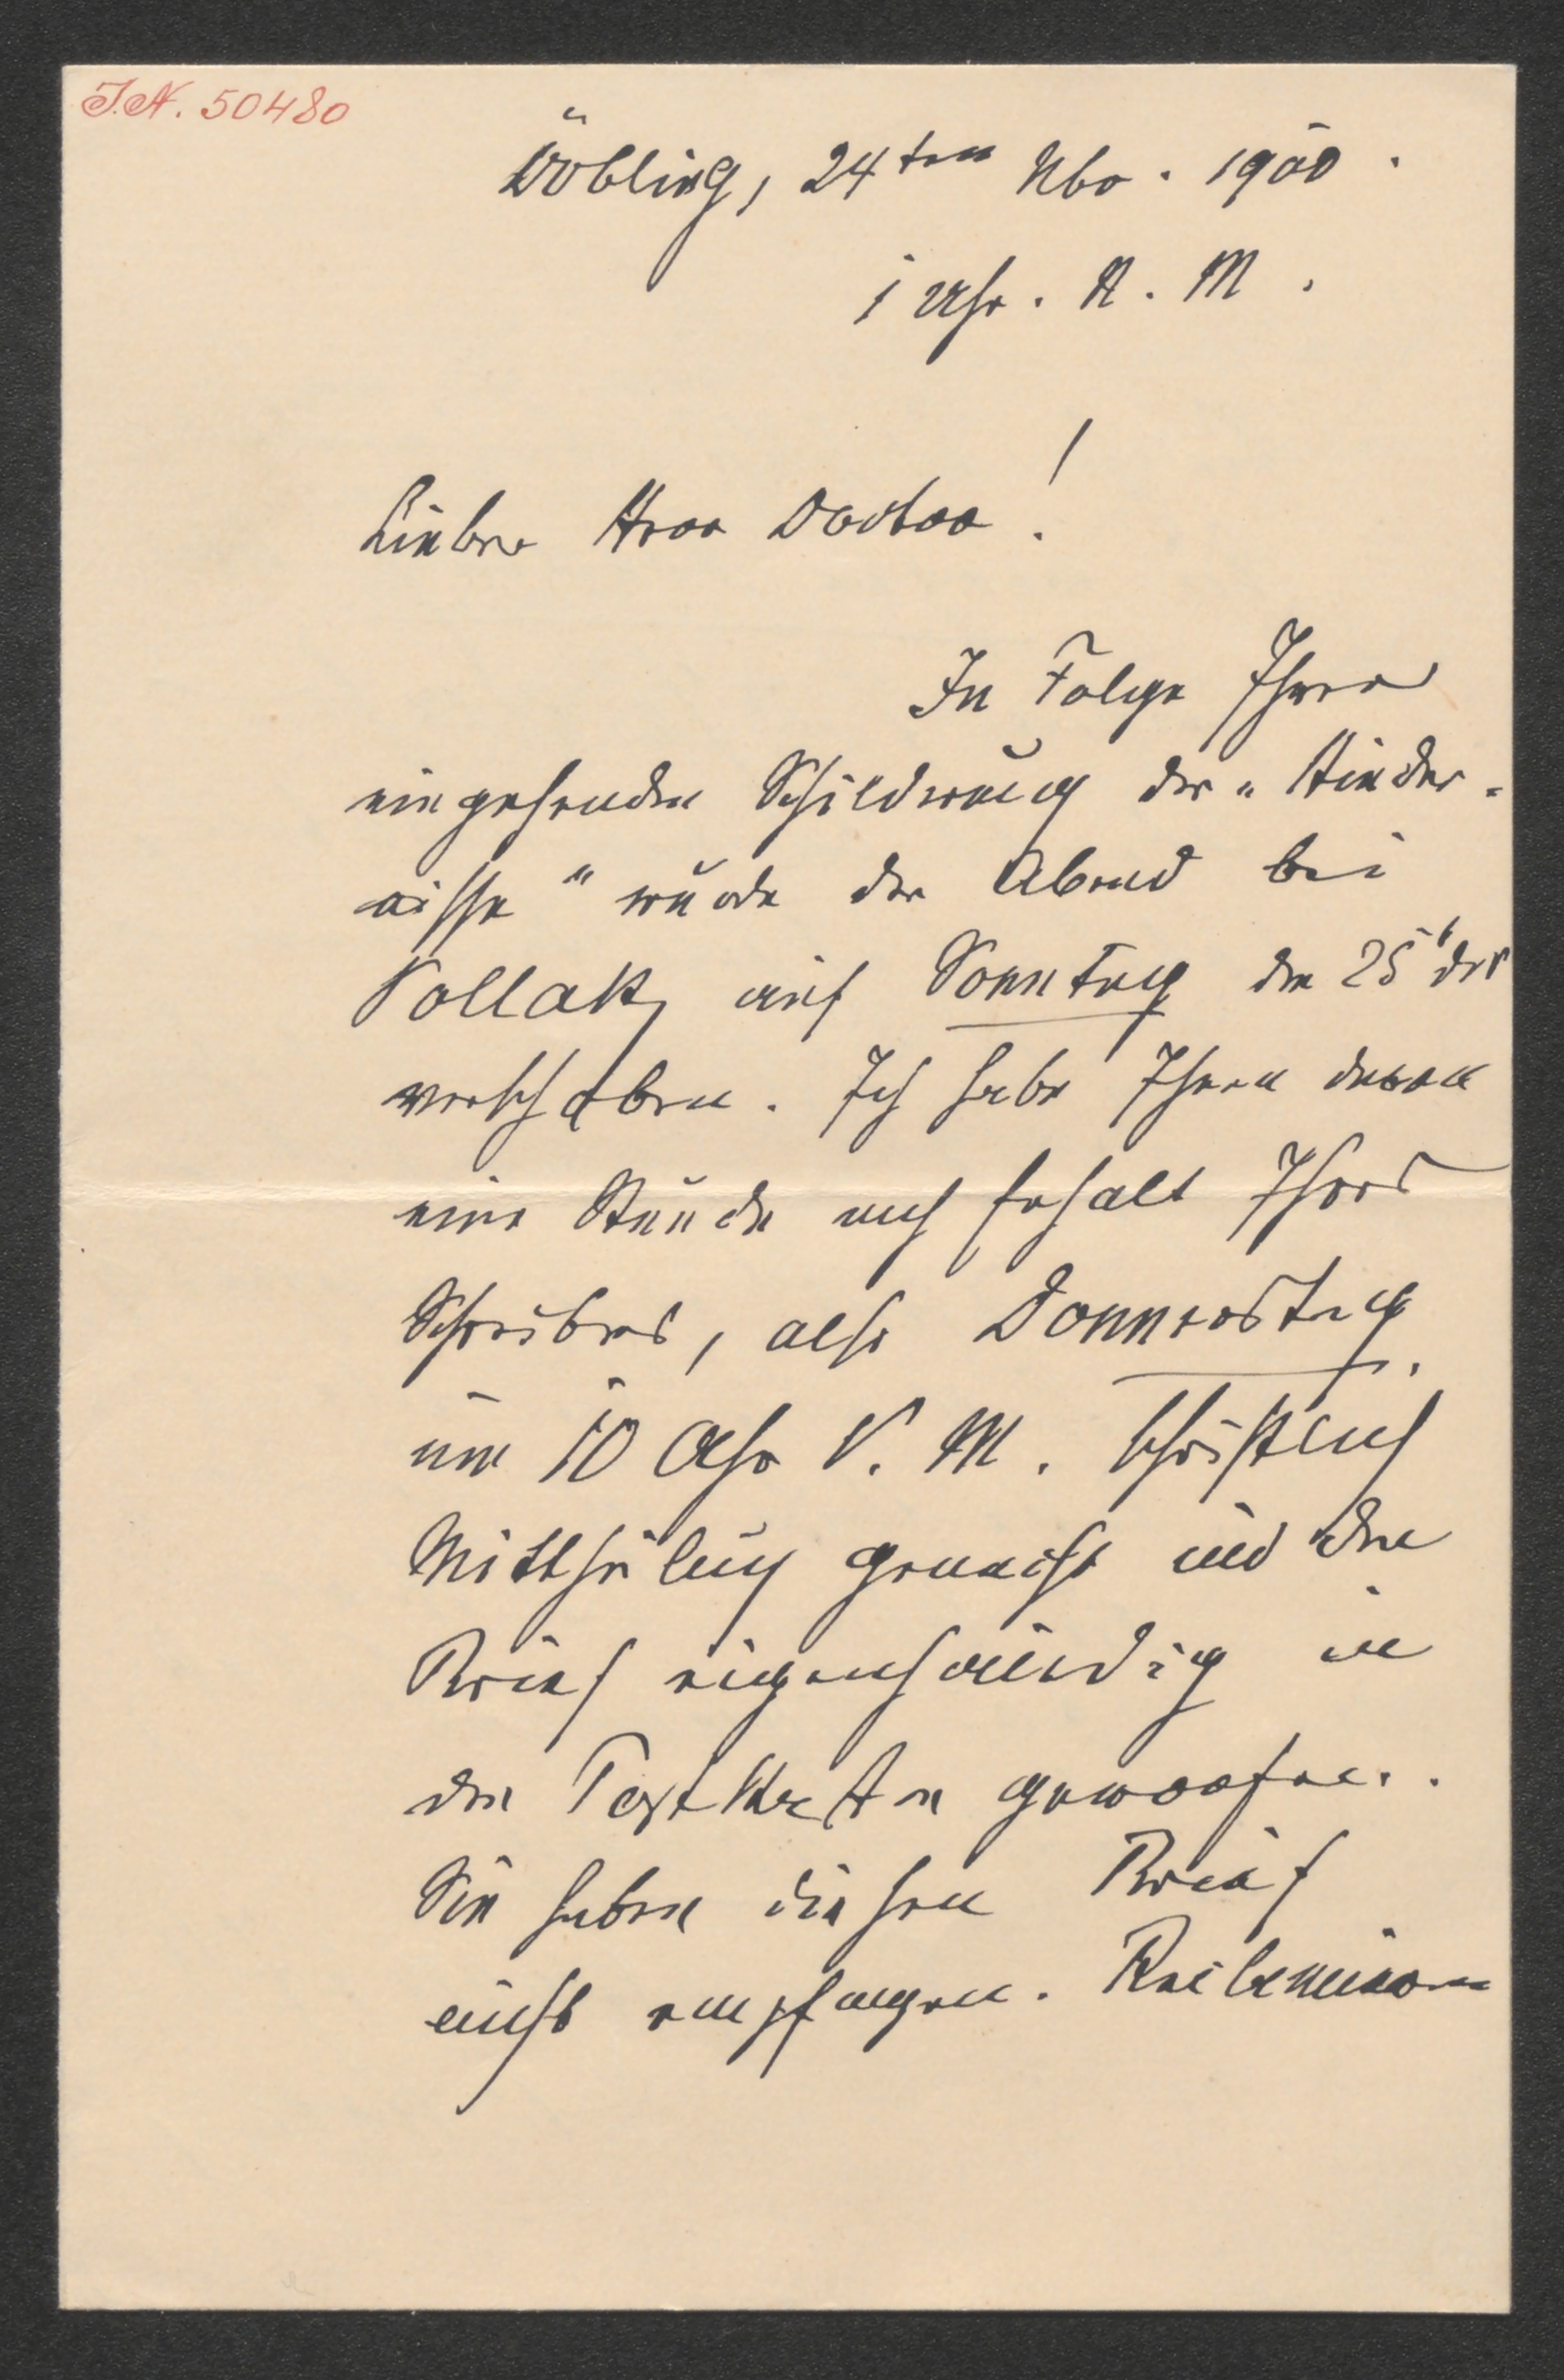 I.N. 50480
Döbling, 24ten Nbr. 1900.
1 Uhr. N. M.
Lieber Herr Doctor!
In Folge Ihrer
eingehenden Schilderung der „Hinder-
nisse“ wurde der Abend bei
Pollak auf Sonntag den 25t des
verschoben. Ich habe Ihnen davon
eine Stunde nach Erhalt Ihres
Schreibens, also Donnerstag
um 10 Uhr V. M. schriftlich
Mittheilung gemacht und den
Brief eigenhändig in
den Postkasten geworfen.
Sie haben diesen Brief
nicht empfangen. Reclamieren